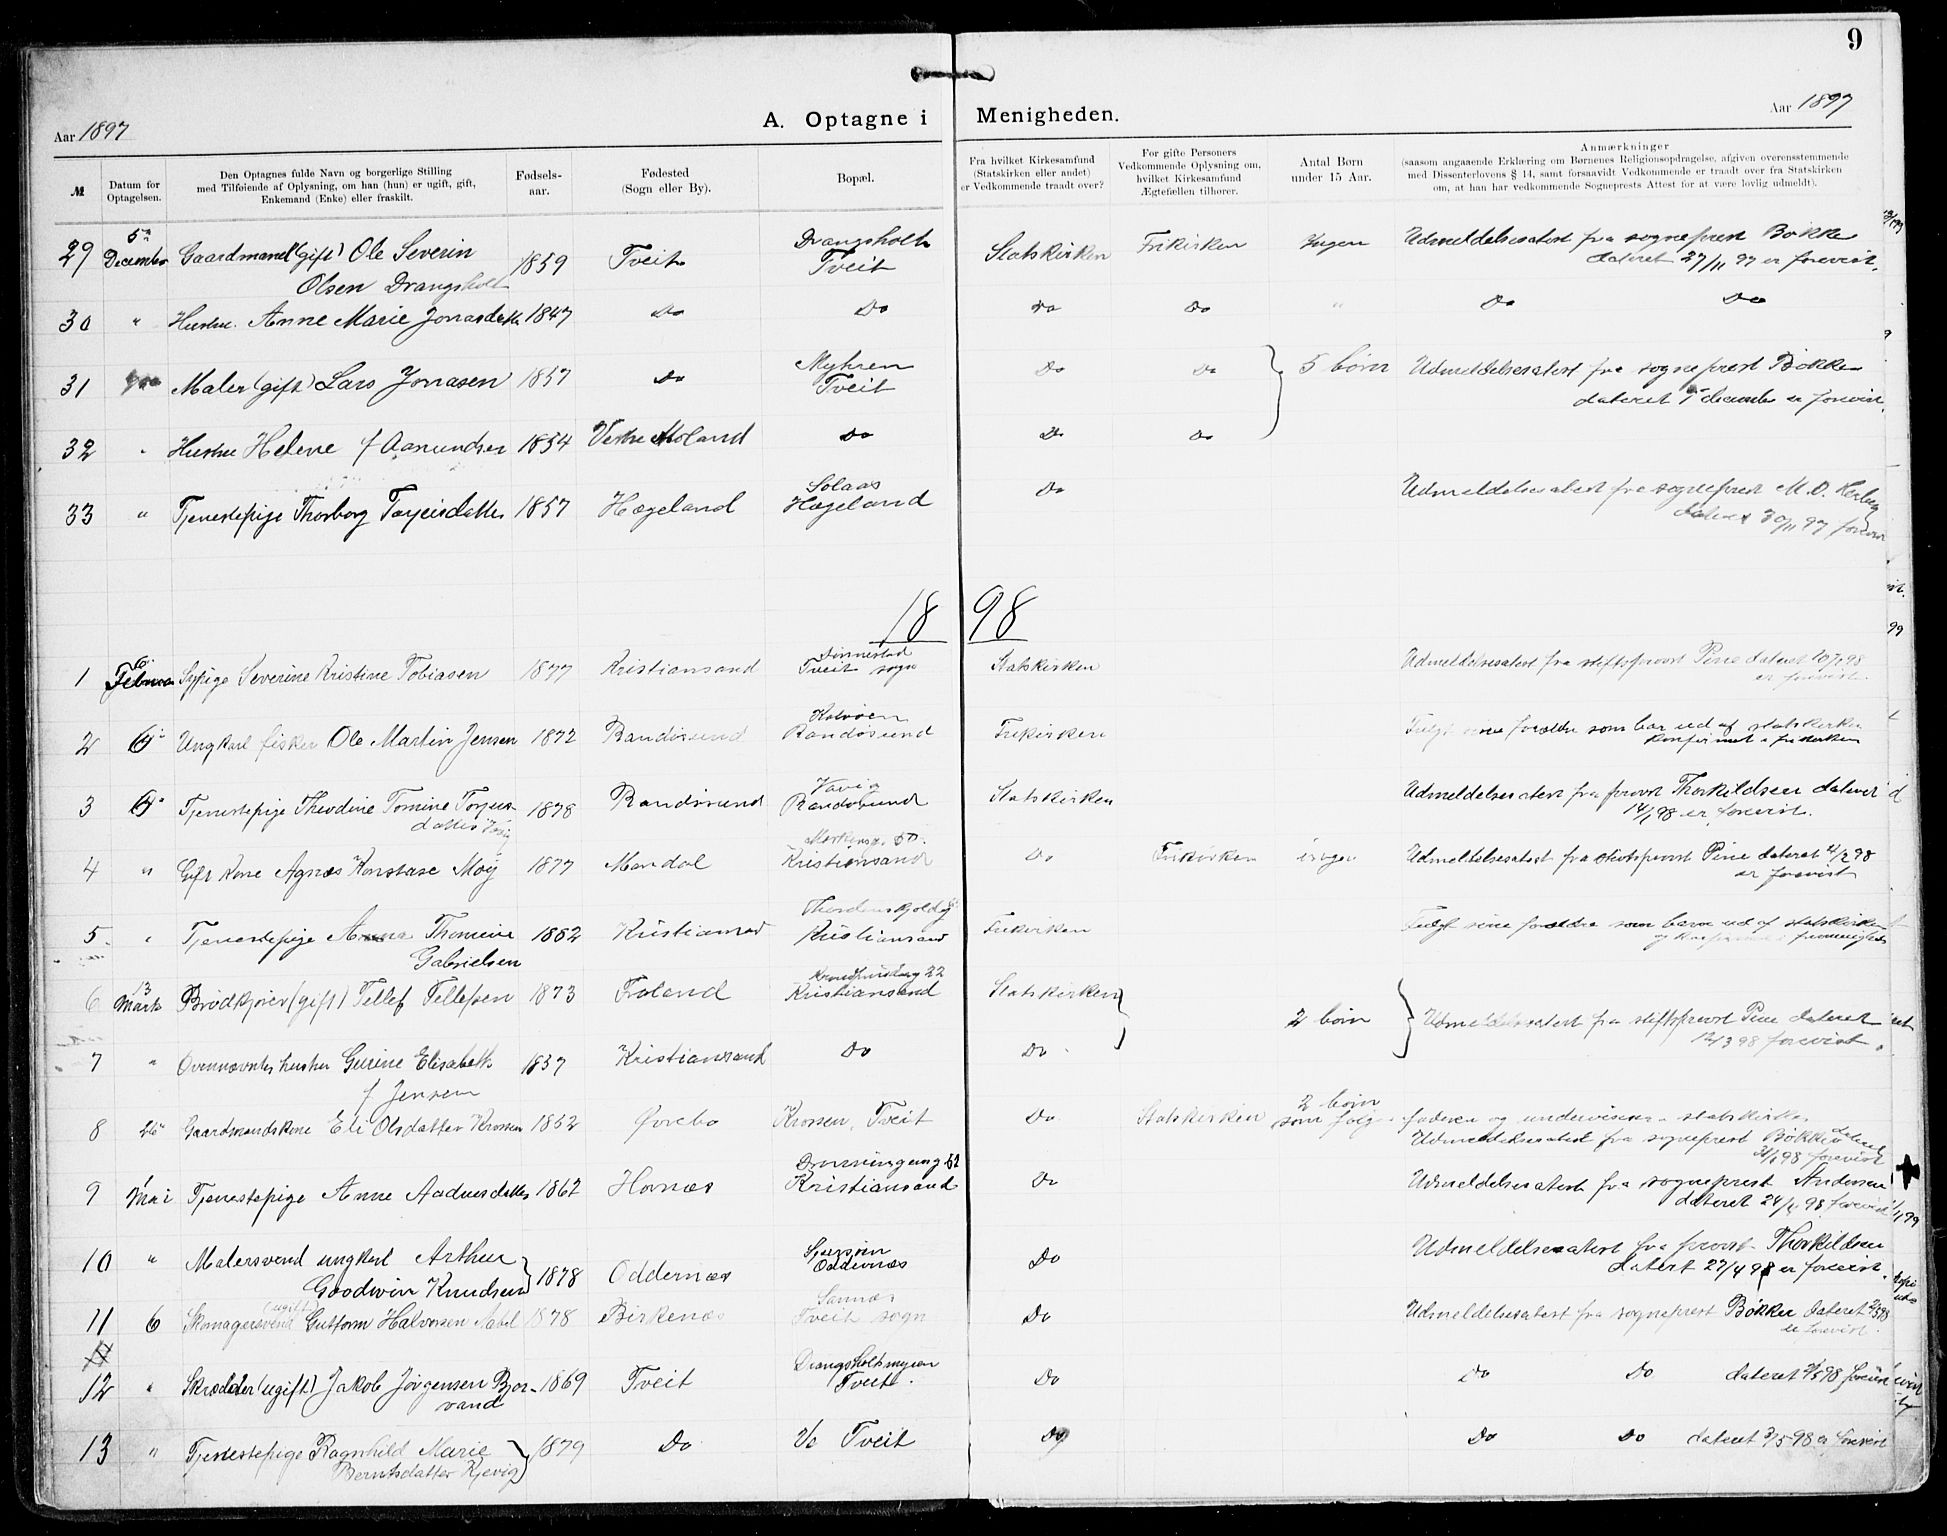 9
Aar 1897
A. Optagne i Menigheden.
Aar 1897
№
Datum for Optagelsen.
Den Optagnes fulde Navn og borgerlige Stilling
med Tilføiende af Oplysning, om han (hun) er ugift, gift,
Enkemand (Enke) eller fraskilt.
Fødsels-
aar.
Fødested
(Sogn eller By).
Bopæl.
Fra hvilket Kirkesamfund
(Statskirken eller andet)
er Vedkommende traadt over?
For gifte Personers
Vedkommende Oplysning om,
hvilket Kirkesamfund
Ægtefællen tilhører.
Antal Børn
under 15 Aar.
Anmærkninger
(saasom angaaende Erklæring om Børnenes Religionsopdragelse, afgiven overensstemmende
med Dissenterlovens § 14, samt forsaavidt Vedkommende er traadt over fra Statskirken
om, at han har vedkommende Sogneprests Attest for at være lovlig udmeldt).
29 5te December Gaardmand (gift) Ole Severin Olsen Drangsholt 1859 Tveit Drangsholt Tveit Statskirken Frikirken Ingen Udmeldelsesattest fra sogneprest Bøkke
dateret 27/11 97 er forevist.
30 " Hustru Anne Marie Jonasdatter 1847 Do Do Do Do " Do Do
31 Maler (gift) Lars Jonasen 1857 Do Myhren Tveit Do Do 5 børn Udmeldelsesattest fra sogneprest Bøkke
dateret 1 december er forevist.
32 " Hustru Helene f Aanundsen 1854 Vestre Moland Do Do Do
33 " Tjenestepige Thorborg Torjeisdatter 1857 Hægeland Solaas Hægeland Do Udmeldelsesattest fra sogneprest M. O.
dateret 30/11 97 forevist
18 98
1 6 Februar Sypige Severine Kristine Tobiasen 1877 Kristiansand Dønnestad Tveit sogn Statskirken Udmeldelsesattest fra stiftsprovst Pine dateret 98
er forevist.
2 6 Ungkarl fisker Ole Martin Jensen 1872 Randøsund Kalvøen Randøsund Frikirken Fulgt sine forældre som bar ud af statskirken
konfirmert i frikirken
3 6 Tjenestepige Theodine Tomine Torjusdatter Vavig 1878 Randøsund Vavig Randøsund Statskirken Udmeldelsesattest fra provst Thorkildsen dateret
14/1 98 er forevist.
4 " Gift kone Agnes Konstase Moy 1877 Mandal Markensg. 50 Kristiansand Do Frikirken ingen Udmeldelsesattest fra stiftsprovst Pine dateret 4/2 98
er forevist
5 " Tjenestepige Anna Thomine Gabrielsen 1882 Kristiansand Thordenskjoldsg. Kristiansand Frikirken Fulgt sine forældre som bare ud af statskirken
og konfirmeret i frimenigheden
6 13 Marts Brødkjører (gift) Tellef Tellefsen 1873 Froland Kristiansand Statskirken 2 børn Udmeldelsesattest fra stiftsprovst Pine dateret
12/3 98 forevist.
7 " Ovennævntes hustru Gurine Elisabeth f Jensen 1857 Kristiansand Do Do
8 26 Gaardmandskone Eli Olsdatter Krossen 1852 Øvrebø Krossen, Tveit Do Statskirken 2 børn som følger faderen og undervises i statskirken
Udmeldelsesattest fra sogneprest Bøkke dateret
98 forevist
9 1 Mai Tjenestepige Anne Aadnesdatter 1862 Hornæs Dronningensg 52 Kristiansand Do Udmeldelsesattest fra sogneprest Andersen
dateret 24/4 98 forevist
10 " Malersvend ungkarl Arthur Goodwin Knudsen 1878 Oddernæs Oddernæs Do Udmeldelsesattest fra provst Thorkildsen
datert 27/4 98 er forevist.
11 6 Skomagersvend (ugift) Guttorm Halvorsen Aabel 1878 Birkenæs Sannæs Tveit sogn Do Udmeldelsesattest fra sogneprest Bøkke dateret 2/5 98
er forevist.
12 " Skrædder (ugift) Jakob Jørgensen Bjorvand 1869 Tveit Drangsholtmyren Tveit. Do Do Do dateret 98 forevist
13 " Tjenestepige Ragnhild Marie Berntsdatter Kjevig 1879 Do Ve Tveit Do Do Do dateret 3/5 98 er forevist